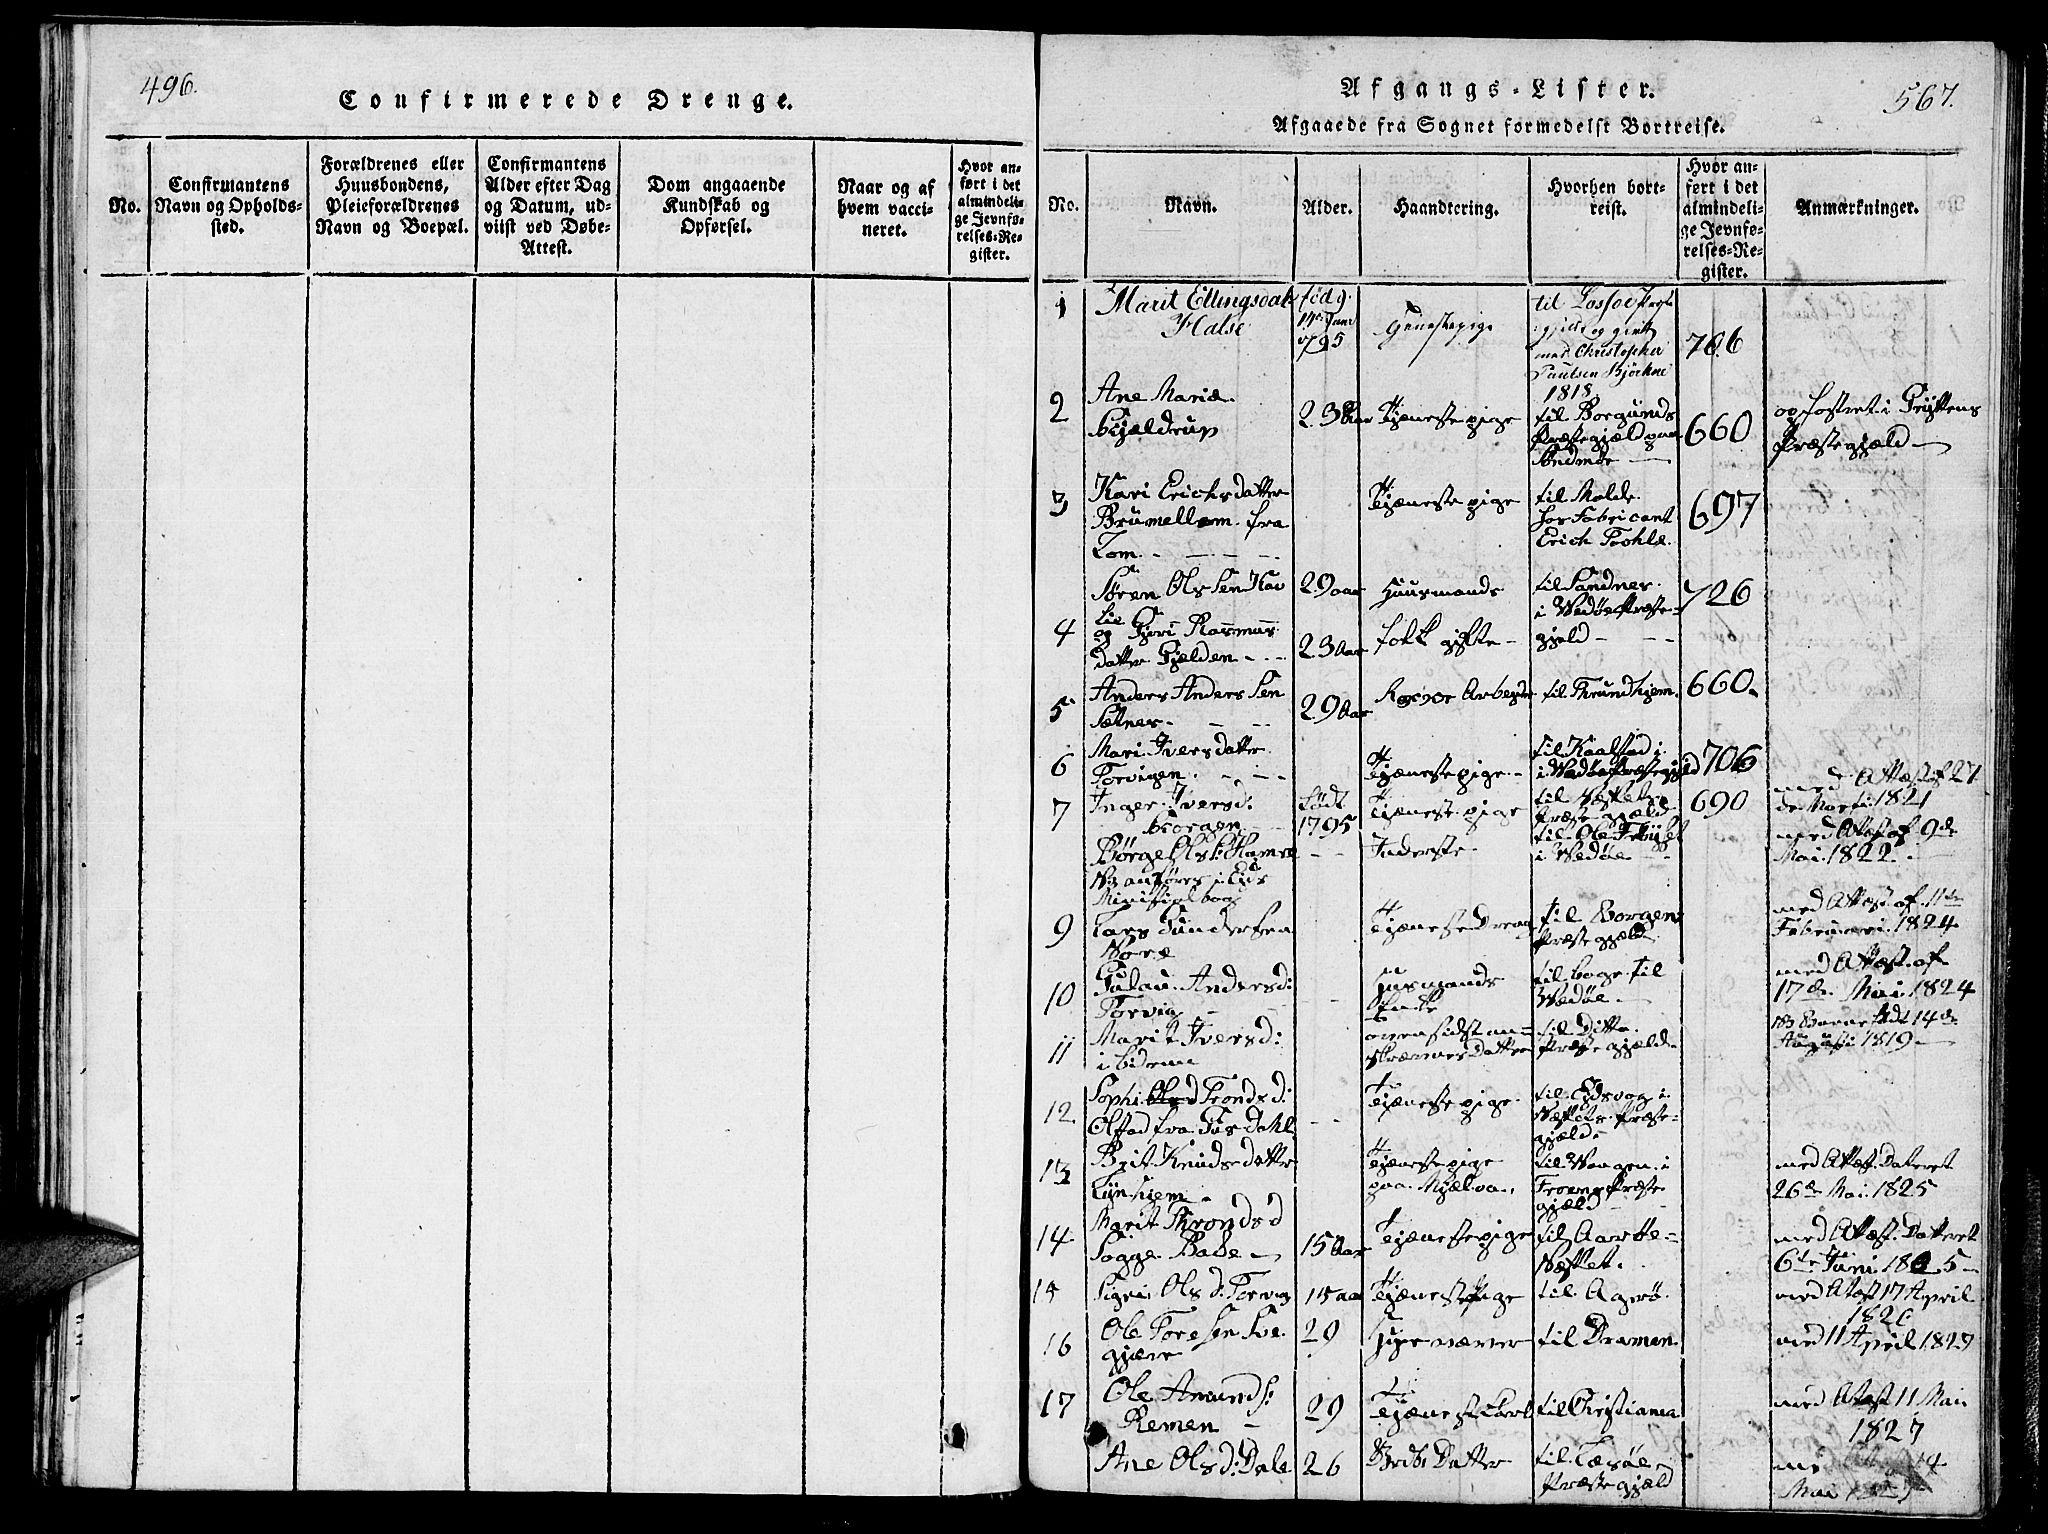 496.
Confirmerede Drenge.
No.
Confirmantens
Navn og Opholds-
sted.
Forældrenes eller
Huusbondens,
Pleieforældrenes
Navn og Boepæl.
Confirmantens
Alder efter Dag
og Datum, ud-
viist ved Døbe-
Attest.
Dom angaaende
Kundskab og
Opførsel.
Naar og af
hvem vacci-
neret.
Hvor an-
ført i det
almindeli-
ge Jevnfø-
relses-Re-
gister.
Afgangs-Lister.
567.
Afgaaede fra Sognet formedelst Bortreise.
No.
Navn.
Alder.
Haandtering.
Hvorhen bort-
reist.
Hvor an-
ført i det
almindeli-
ge Jevnfø-
relses-Re-
gister.
Anmærkninger.
1
Marit Ellingsdatr
Halse
fød g.
14de Janr
1795
til
og givt
med Christopher
Paulsen Bjørkne
1818
706
2
Ane Maria
23 Aar
Tjænestepige
til Borgunds
Præstegjæld paa
Søndmør
660
opfostret i Gryttens
Præstegjæld
3
Kari Erichsdatter
Brumellom fra
Lom.
Tjænestepige
til Molde
hos Fabricant
Erich
697
4
Søren Olssen Kav
lie
og Gjøri Rasmus
datter Gjelden
29 aar
23 Aar
Huusmands
folk gifte
til Sandnes
i Wedøe Præste-
gjeld
726
5
Anders Anderssen
Sætnes
29 Aar
Arbeyder
til Thrundhjem.
660
6
Mari Iversdatter
Torvigen.
Tjænestepige
til Kaalstad i
i Wedøe Præstegjeld
706
7
Inger Iversd:
født
1795
Tjæneste pige
til Næssets
Præstegjæld
690
med Attest af 27
de Marti 1821
Børge Ols: Hamre
NB anføres i Eids
Ministrialbog
Inderste
til Ole
i Wedøe
med Attest af 9de
Mai 1822
9
Lars Gundersen
Nore
Tjæneste Dreng
til Borgen
Præstegjæld
med Attest af 11te
Februari 1824
10
Gulau Andersd:
Torvig
Husmands
Enke
til Boge til
Wedøe
med Attest af
17de Mai 1824
11
Marit Iversd:
ovensidst an-
skrevnes Datter
til Ditto
Præstegjæld
NB Barn født 14de
August 1819
12.
Sophi Trondsd:
Olstad fra Gusdahl
Tjæneste pige
til Eidsvog i
Næssets Præste-
gjæld
13
Brit Knudsdatter
Lynhjem
Tjæneste pige
paa Mjelva.
til Vaagen i
Froens Præste
gjæld
med Attest Dateret
26de Mai 1825
14
Marit Throndsd
Sogge Bade
15 Aar
Tjænestepige
til Aarøe-
Næsset.
med Attest Datteret
6te Juni 1825
15
Sigri Ols d: Torvig
15 aar
Tjænestepige
til Agerø.
med Attest 17 April
1826
16
Ole Toresen Sve
gjære
29
til Dramen
med 11 April 1827
17
Ole Amunds:
Remen
29
Tjænestkarl
til Christiania
med Attest 11 Mai
1827
Ane Olsd: Dale
26
Datter
til
Præstegjæld
14
Mai